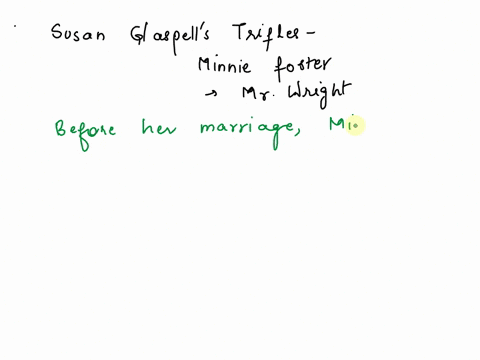 Susan Glaspell's Trifles -
Minnie foster
→ Mr. Wright
Before her marriage, Mi